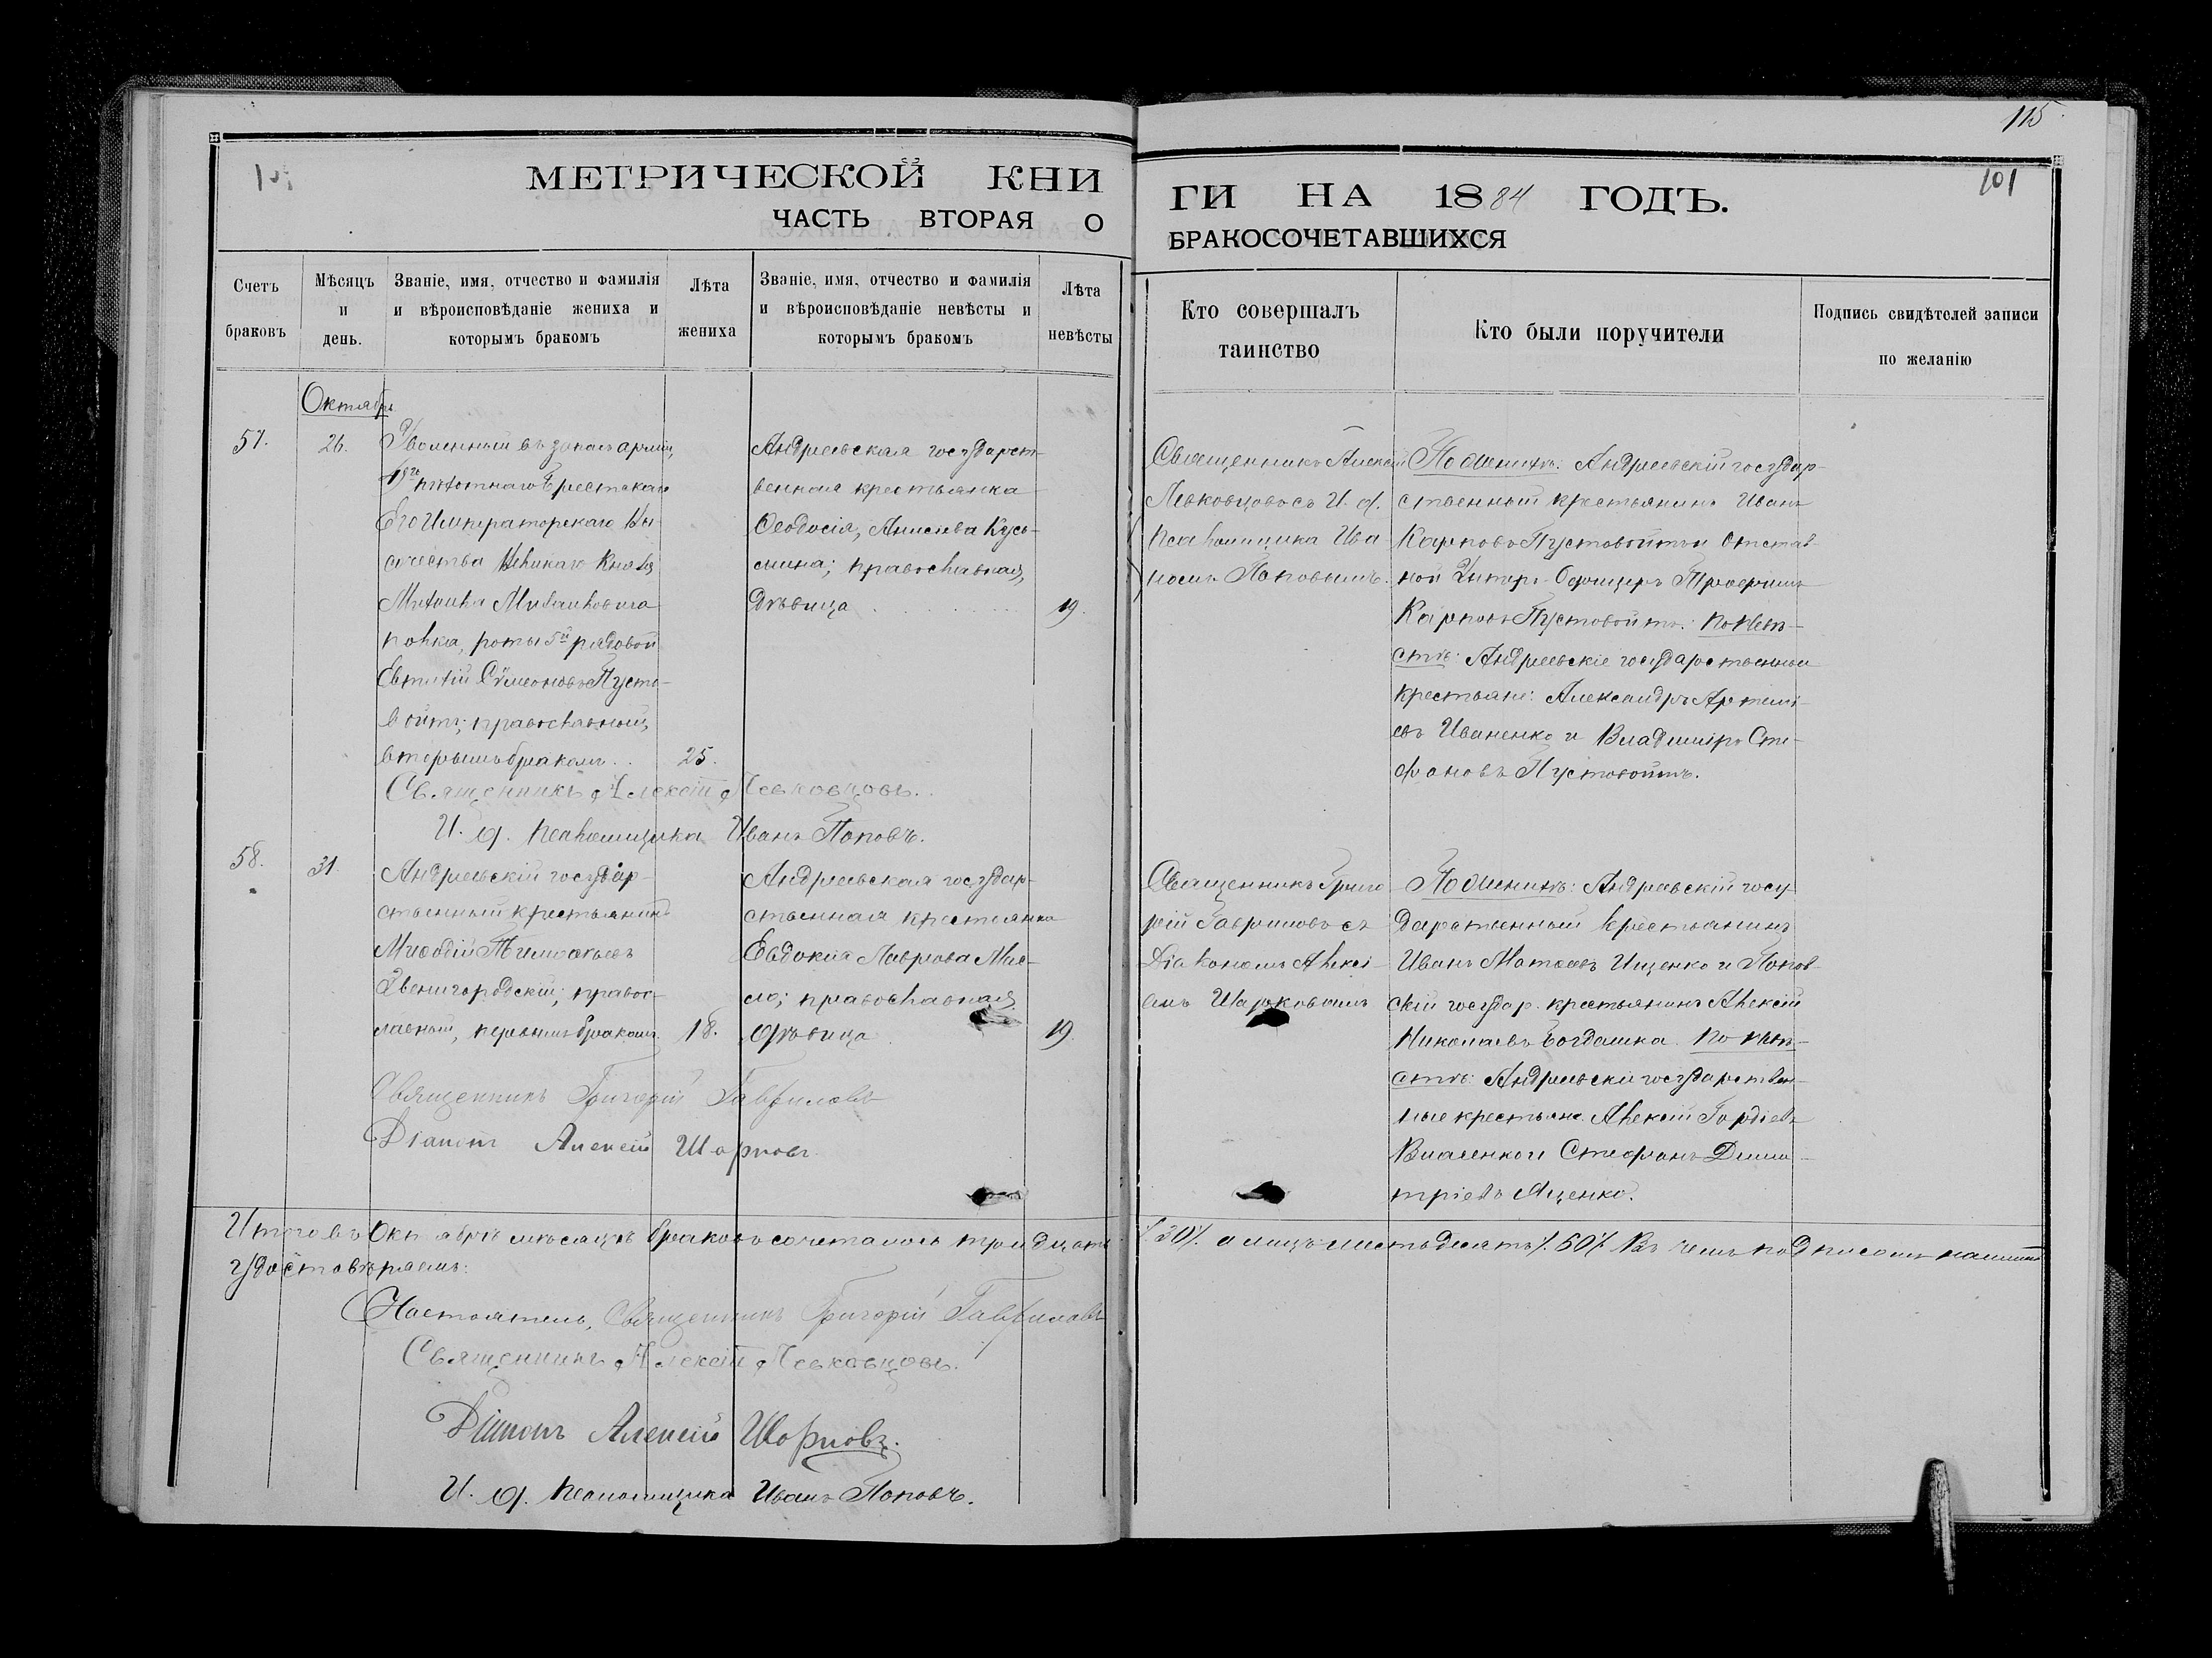 115
101
МЕТРИЧЕСКОЙ КНИ
ГИ НА 1884 ГОДЪ.
ЧАСТЬ ВТОРАЯ О
БРАКОСОЧЕТАВШИХСЯ
Счетъ браковъ
Мѣсяцъ и день.
Званіе, имя, отчество и фамилія
и вѣроисповѣданіе жениха и
которымъ бракомъ
Лѣта жениха
Званіе, имя, отчество и фамилія
и вѣроисповѣданіе невѣсты и
которымъ бракомъ
Лѣта невѣсты
Кто совершалъ
таинство
Кто были поручители
Подпись свидѣтелей записи
по желанію
Октябрь
57.
26.
Уволенный въ запасъ арміи,
пѣхотнаго Брестскаго
Его Императорскаго Вы-
сочества Великаго Князя
Михаила Михаиловича
полка, роты 5й рядовой
Евтихій Сѵмеоновъ Пусто-
войтъ; православный,
вторымъ бракомъ . .
25.
Андреевская государст-
венная крестьянка
Ѳеодосія, Кузь-
мина; православная,
дѣвица
19.
Священникъ Алексій
Левковцовъ съ И. д.
псаломщика Ива-
номъ Поповымъ.
По женихѣ: Андреевскій государ-
ственный крестьянинъ Иванъ
Карповъ Пустовойтъ и отстав-
ной Унтеръ-Офицеръ Трофимъ
Карповъ Пустовойтъ. По невѣ-
стѣ: Андреевскіе государственные
крестьяне: Александръ Артемі-
евъ Иваненко и Владиміръ Сте-
фановъ Пустовойтъ.
Священникъ Алексій Левковцовъ.
И. д. псаломщика Иванъ Поповъ.
58.
31
Андреевскій государ-
ственный крестьянинъ
Меѳодій Тимоѳеевъ
Звенигородскій; правос-
лавный, первымъ бракомъ.
18.
Андреевская государ-
ственная крестьянка
Евдокія Лаврова Мас-
ло; православная,
дѣвица
19.
Священникъ Григо-
рій Гавриловъ съ
Діакономъ Алексі-
емъ Шарковымъ
По женихѣ: Андреевскій госу-
дарственный крестьянинъ
Иванъ Матѳеевъ Ищенко и Попов-
скій государ. крестьянинъ Алексій
Николаевъ Богдашка. По невѣ-
стѣ: Андреевскіе государствен-
ные крестьяне Алексій Гордіевъ
Власенко и Стефанъ Дими-
тріевъ Яценко.
Священникъ Григорій Гавриловъ
Діаконъ Алексій Шарковъ
Итого въ Октябрѣ мѣсяцѣ браковъ сочеталось тридцать
/.30/. а лицъ шестьдесятъ /.60/. Въ чемъ подписомъ нашимъ
удостовѣряемъ:
Настоятель, Священникъ Григорій Гавриловъ
Священникъ Алексій Левковцовъ.
Діаконъ Алексій Шарковъ.
И. д. псаломщика Иванъ Поповъ.